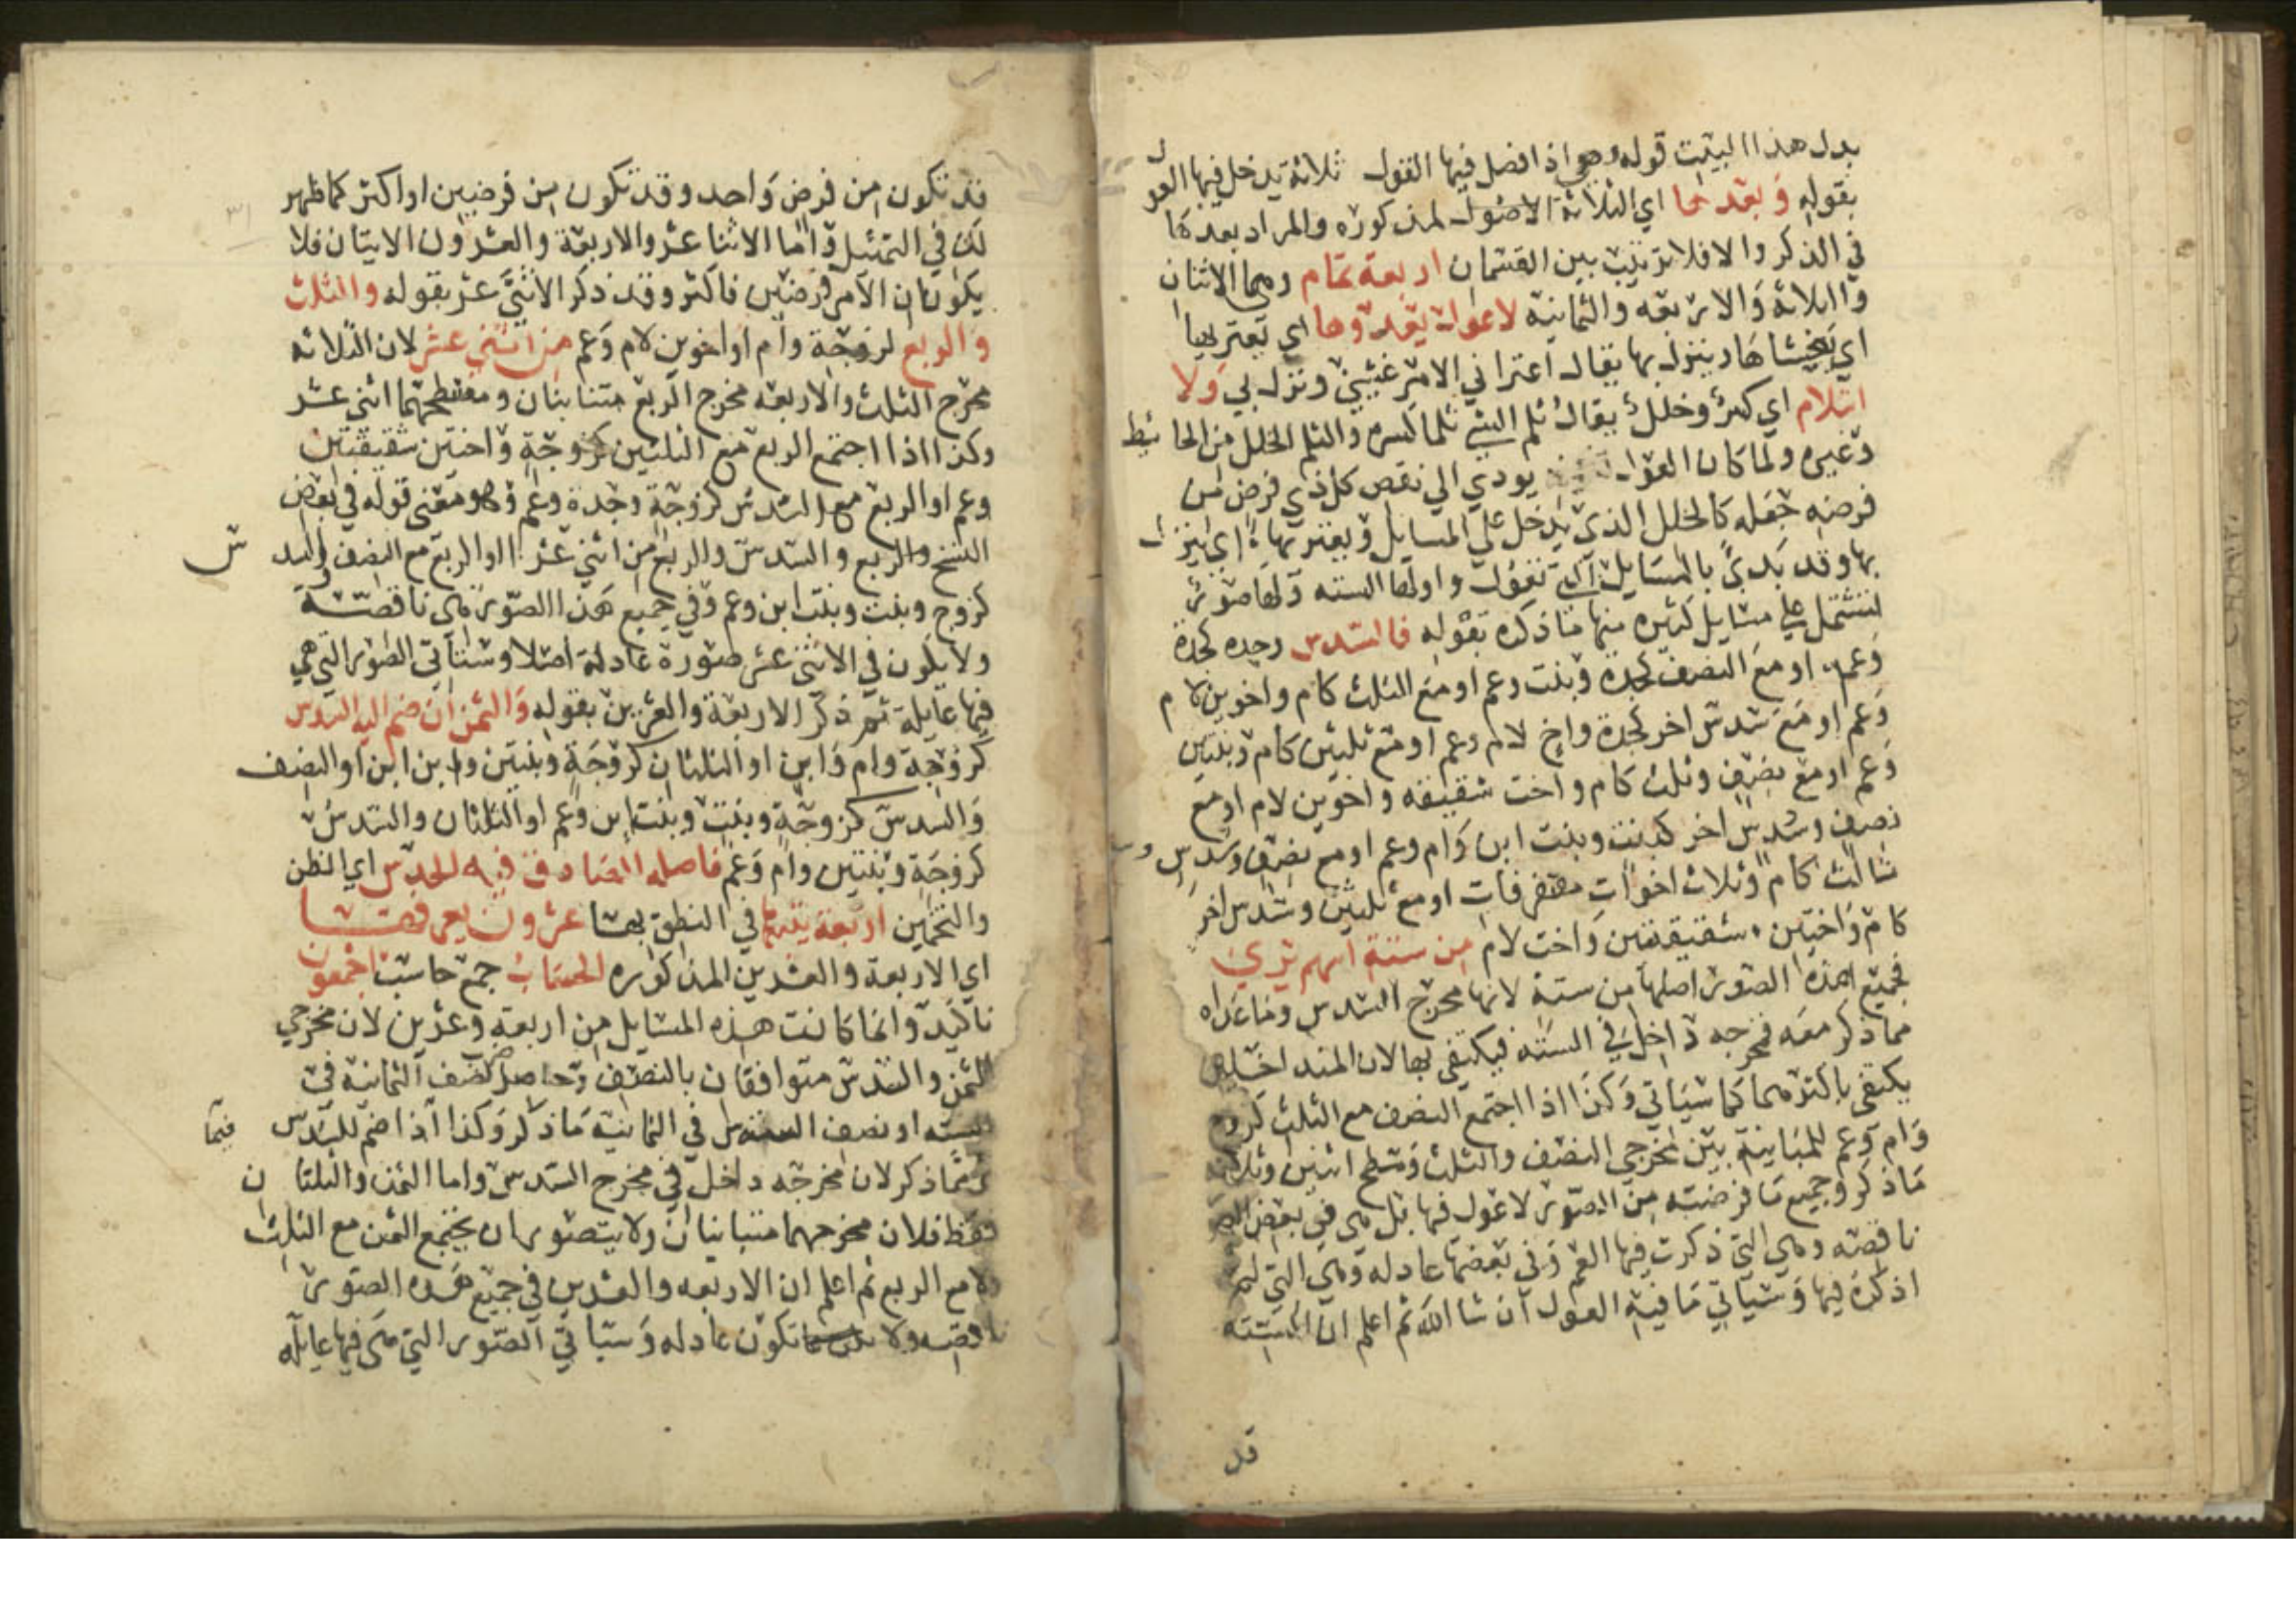 بدل هذا البيت قوله وهي اذا فصل فيها القول ثلاثة يدخل فيها العول
بقوله وبعدها اي الثلاثة الاصول لمذكوره والمراد بعدها
في الذكر والا فلا ترتيب بين القسمان اربعة تمام وهما الاثنان
والثلاثة والاربعه والثمانية لا عول يعدوها اي يعتريها
اي يغشاها وينزل بها يقال اعتراني الامر غشيني ونزل بي ولا
انثلام اي كسر وخلل يقال ثلم الشي ثلما كسره والثلم الخلل من الحائط
وغيره ولما كان العول يودي الي نقص كل ذي فرض من
فرضه جعله كالخلل الذي يدخل علي المسايل ويعتريها اي ينزل
بها وقد بدئ بالمسايل التي تعول واولها السته ولها صور
تشتمل علي مسايل كثيره منها ما ذكره بقوله فالسدس وحده كجدة
وعم او مع النصف كجدة وبنت وعم او مع الثلث كام واخوين لام
وعم او مع سدس اخر كجدة واخ لام وعم او مع ثلثين كام وبنتين
وعم او مع نصف وثلث كام واخت شقيقه واخوين لام او مع
نصف وسدس اخر كبنت وبنت ابن وام وعم او مع نصف وسدس وسدس
ثالث كام وثلاث اخوات متفرقات او مع ثلثين وسدس اخر
كام واختين شقيقتين واخت لام من ستة اسهم يري
فجميع هذه الصور اصلها من ستة لانها مخرج السدس وما عداه
مما ذكر معه فمخرجه داخل في السته فيكتفي بها لان المتداخلين
يكتفي باكثرهما كما سياتي وكذا اذا اجتمع النصف مع الثلث كزوج
وام وعم للمباينة بين مخرجي النصف والثلث ومسطح اثنين وثلاثة
ما ذكر وجميع ما فرضته من الصور لا عول فيها بل هي في بعض
ناقصه وهي التي ذكرت فيها العم وفي بعضها عادله وهي التي لم
اذكره فيها وسياتي ما فيه العول ان شا الله ثم اعلم ان الستة
قد
قد تكون من فرض واحد وقد تكون من فرضين او اكثر كما ظهر
لك في التمثيل واما الاثنا عشر والاربعة والعشرون الاتيتان فلا
يكونان الا من فرضين فاكثر وقد ذكر الاثني عشر بقوله والثلث
والربع لزوجة وام او اخوين لام وعم من اثني عشر لان الثلاثه
مخرج الثلث والاربعه مخرج الربع متباينان ومسطحهما اثني عشر
وكذا اذا اجتمع الربع مع الثلثين كزوجة واختين شقيقتين
وعم او الربع مع السدس كزوجة وجدة وعم وهو معنى قوله في بعض
النسخ والربع والسدس والربع من اثني عشر او الربع مع النصف والسدس
كزوج وبنت وبنت ابن وعم وفي جميع هذه الصور هي ناقصة
ولا يكون في الاثني عشر صورة عادلة اصلا وستاتي الصور التي هي
فيها عايلة ثم ذكر الاربعة والعشرين بقوله والثمن ان ضم اليه السدس
كزوجة وام وابن او الثلثان كزوجة وبنتين وابن ابن او النصف
والسدس كزوجة وبنت وبنت ابن وعم او الثلثان والسدس
كزوجة وبنتين وام وعم فاصله الصادق فيه الحدس اي الظن
والتخمين اربعة يتبعها في النطق بها عشرون يعرفها
اي الاربعة والعشرين المذكوره الحساب جمع حاسب اجمعون
تاكيد وانما كانت هذه المسايل من اربعة وعشرين لان مخرجي
الثمن والسدس متوافقان بالنصف وحاصل ضرب نصف الثمانية في
الستة او نصف الستة في الثمانية ما ذكر وكذا اذا ضم للسدس فيما
مما ذكر لان مخرجه داخل في مخرج السدس واما الثمن والثلثان
فقط فلان مخرجهما متباينان ولا يتصور ان يجتمع الثمن مع الثلث
ولا مع الربع ثم اعلم ان الاربعه والعشرين في جميع هذه الصور
ناقصه ولا تكون عادله وستاتي الصور التي هي فيها عايله